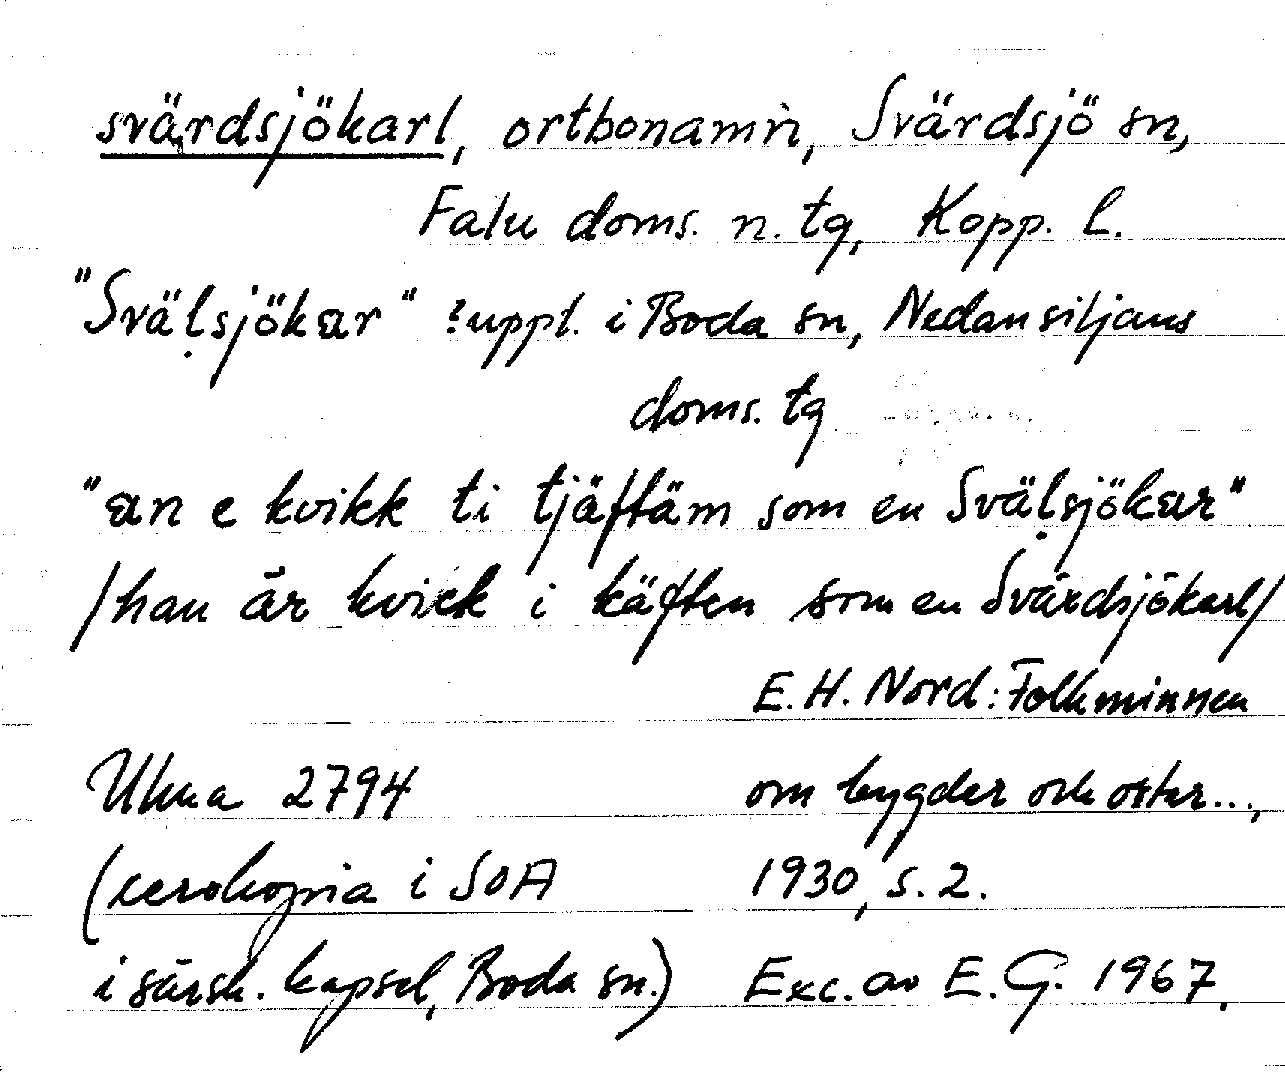 svärdsjökarl, ortbonamn, Svärdsjö sn,
Falu doms. n. tg, Kopp. l.
"Sväḷsjökar" : uppl. i Boda sn, Nedansiljans
doms. tg
"an e kvikk ti tjäftäm som en Sväḷsjökar"
/han är kvick i käften som en Svärdsjökarl/
E. H. Nord: Folkminnen
Ulma 2794 om bygder och orter...,
(xerokopia i SOA 1930, s. 2.
i särsk. kapsel, Boda sn.) Exc. av E. G. 1967.